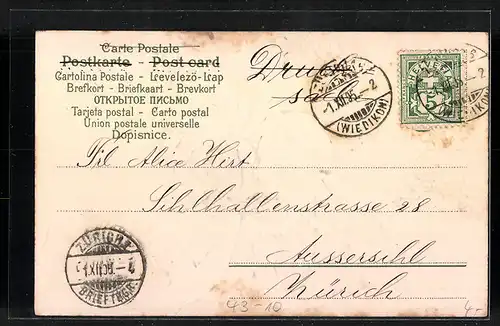 Carte Postale
Postkarte — Post card
Cartolina Postale - Levelező-Lap
Brefkort - Briefkaart - Brevkort
ОТКРЫТОЕ ПИСЬМО
Tarjeta postal - Carto postal
Union postale universelle
Dopisnice.
HELVETIA
5
-1.XII.05.-2
(WIEDIKON)
Frl Alice Hirt
Sihlhallenstrasse 28
Aussersihl
Zürich
ZÜRICH
BRIEFTRGR.
43-10
4.-